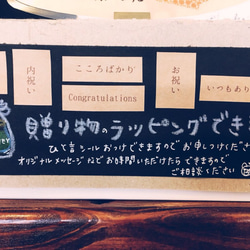 内祝い
こころばかり
Congratulations
お祝い
いつもあり
贈り物のラッピングでき
ひと言シールおつけできますので お申しつけくださ
オリジナルメッセージなど お時間いただけたら できますので
ご相談ください